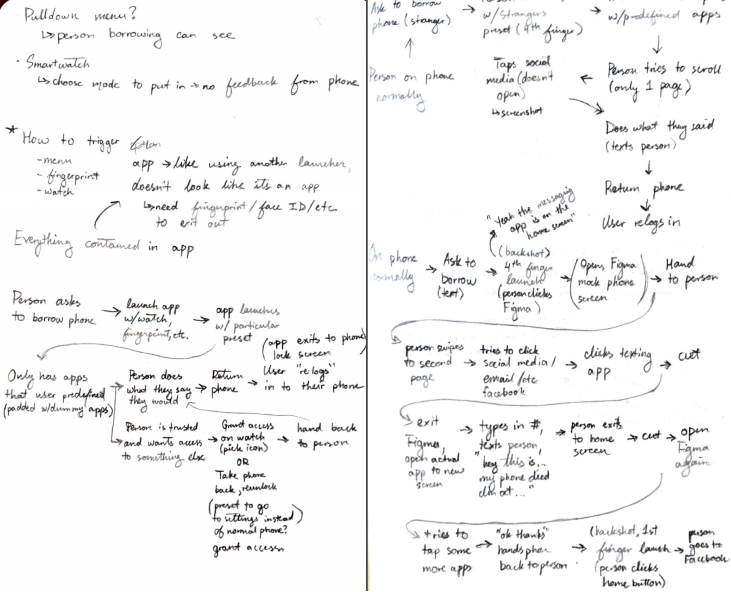 Pulldown menu?
↳ person borrowing can see
· Smartwatch
↳ choose mode to put in → no feedback from phone
* How to trigger
- menu
- fingerprint
- watch
app → like using another launcher,
doesn't look like its an app
↳ need fingerprint / face ID / etc
to exit out
Everything contained in app
Person asks
to borrow phone
→ launch app
w/ watch,
fingerpint, etc.
→ app launches
w/ particular
preset
(app exits to phone
lock screen
Only has apps
that user predefined
(padded w/ dummy apps)
Person does
what they say
they would
→ Return
phone
→ User "re logs"
in to their phone
Person is trusted
and wants access
to something else
→ Grant access
on watch
(pick icon)
OR
Take phone
back, reunlock
(preset to go
to settings instead
of normal phone?
grant access
→ hand back
to person
Ask to borrow
phone (stranger)
w/ strangers
preset (4th finger)
w/ predefined apps
Person on phone
normally
Taps social
media (doesn't
open)
↳ screenshot
Person tries to scroll
(only 1 page)
Does what they said
(texts person)
Return phone
User relogs in
"Yeah the messaging
app is on the
home screen"
On phone
normally
→ Ask to
borrow
(text)
→ (backshot)
4th finger
launch
(person clicks
Figma)
→ (Opens Figma
mock phone
screen)
→ Hand
to person
person swipes
to second
page
→ tries to click
social media /
email / etc
facebook
→ clicks texting
app
→ cut
exit
Figma,
open actual
app to new
screen
→ types in #,
texts person,
"hey this is...
my phone died
..."
→ person exits
to home
screen
→ cut
→ open
Figma
again
* tries to
tap some
more apps
→ "ok thanks"
hands phone
back to person
→ (backshot, 1st
finger launch
(person clicks
home button)
→ person
goes to
Facebook